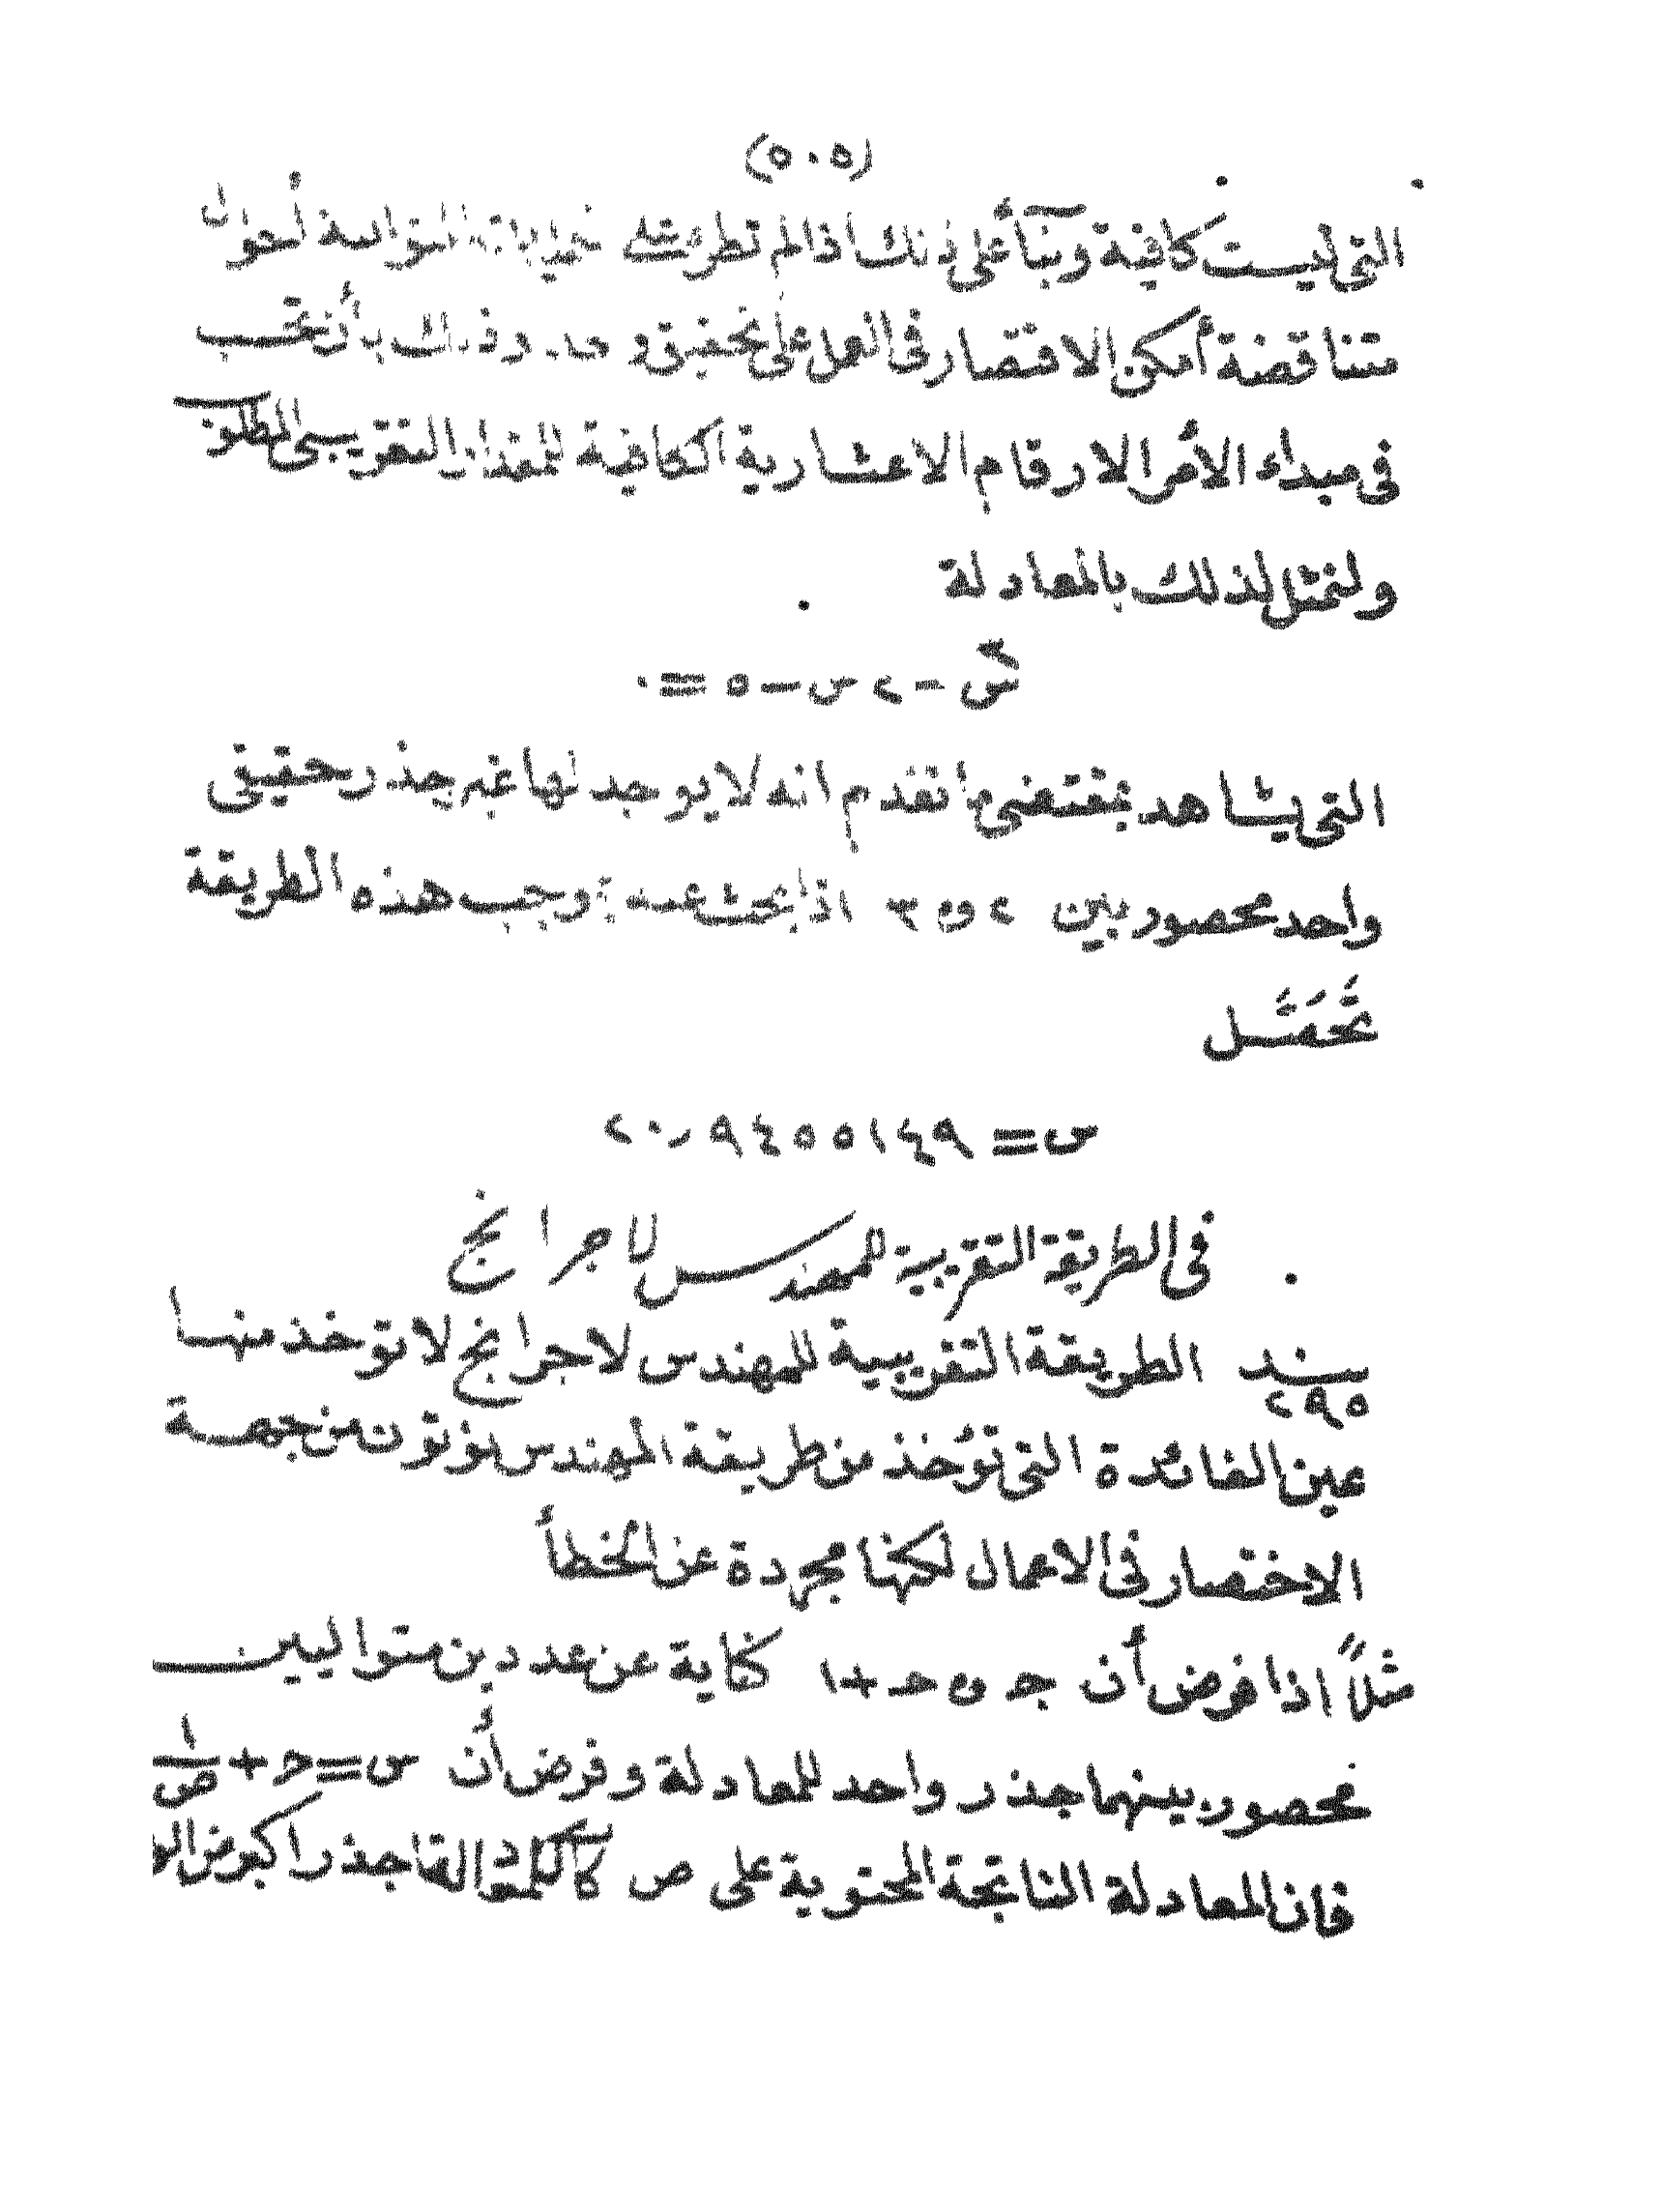 (٥٠٥)
التى ليست كافية وبنآأ على ذلك اذا لم تطرء المتوالية أحوال
متناقضة أمكن الاقتصار فى العمل على تحقيق و وذلك بأن تحسب
فى مبداء الأمر الارقام الاعشارية الكافية للمقدار التقريبى المطلوب
ولنمثل لذلك بالمعادلة
س٣ - ٢ س - ٥ = ٠
التى يشاهد بمقتضى ما تقدم انه لا يوجد لها غير جذر حقيقى
واحد محصور بين ٢ و ٣ اذا بحث عنه بموجب هذه الطريقة
تَحَصَّل
س = ٢٠٫٩٤٥٥١٤٩
فى الطريقة التقريبية للمهندس لاجرانج
سند ٢٩٥ الطريقة التقريبية للمهندس لاجرانج لا توخذ منها
عين الفائدة التى تؤخذ من طريقة المهندس نوتون من جهة
الاختصار فى الاعمال لكنها مجردة عن الخطأ
مثلاً اذا فرض أن حـ و حـ + ١ كناية عن عددين متواليين
محصور بينهما جذر واحد للمعادلة وفرض أن س = حـ + ١/ص
فان المعادلة الناتجة المحتوية على ص جذر اكبر من